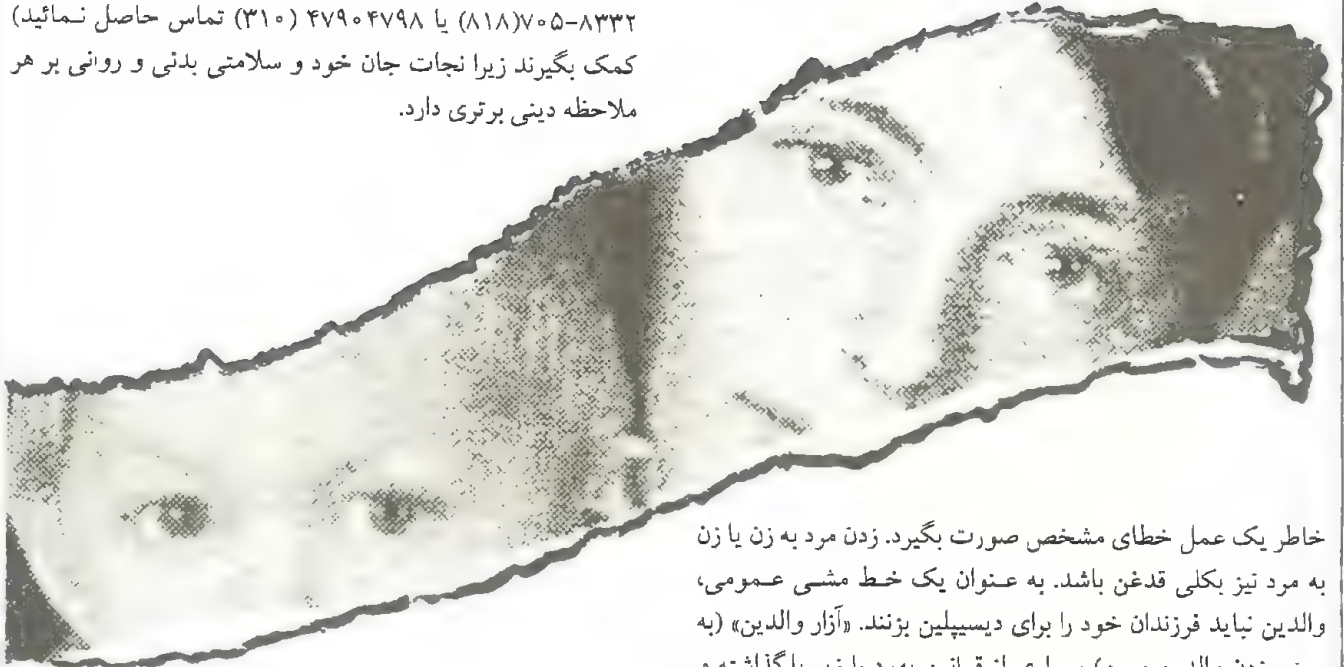 ۸۳۳۲-۷۰۵(۸۱۸) یا ۴۷۹۰۴۷۹۸ (۳۱۰) تماس حاصل نمائید)
کمک بگیرند زیرا نجات جان خود و سلامتی بدنی و روانی بر هر
ملاحظه دینی برتری دارد.
خاطر یک عمل خطای مشخص صورت بگیرد. زدن مرد به زن یا زن
به مرد نیز بکلی قدغن باشد. به عنوان یک خط مشی عمومی،
والدین نباید فرزندان خود را برای دیسیپلین بزنند. «آزار والدین» (به